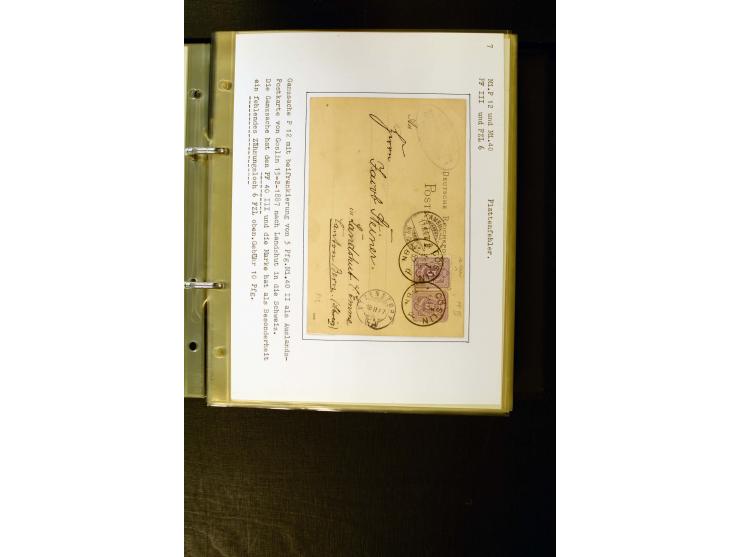 7
Mi.P 12 und Mi.40
PF III und FZL 6
Plattenfehler.
DEUTSCHE REICHSPOST
POSTKARTE
An
Herrn Jacob Steiner.
in Landshut
Canton Bern
CÖSLIN
CÖSLIN
Ganzsache P 12 mit beifrankierung von 5 Pfg.Mi.40 II als Auslands-
Postkarte von Coslin 15-2-1887 nach Landshut in die Schweiz.
Die Ganzsache hat den PF 40 III und die Marke hat als Besonderheit
ein fehlendes Zähnungsloch 6 FZL oben.Gebühr 10 Pfg.